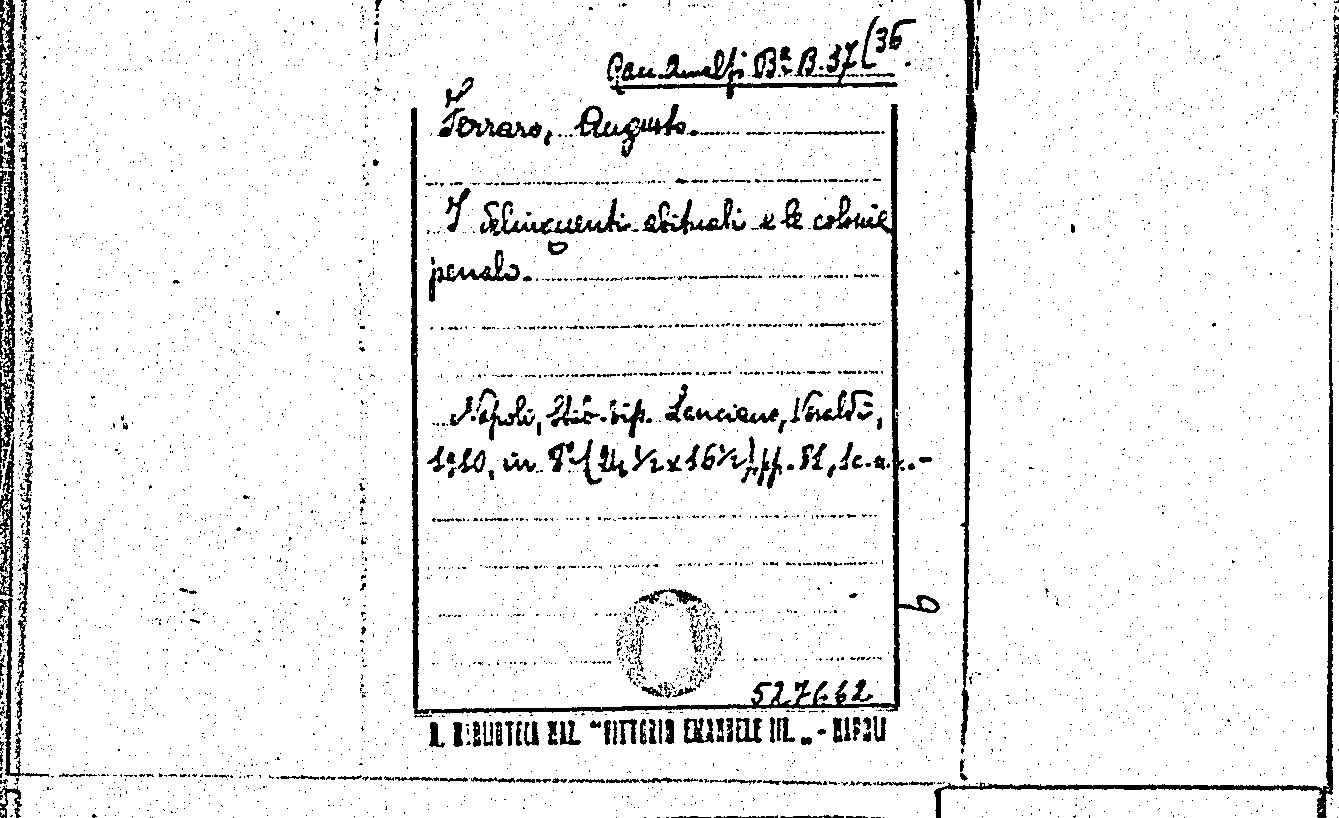 Gan. Amalfi Bª B. 37 (36.
Ferraro, Augusto.
I delinquenti abituali e le colonie
penali.
Napoli, Stab. tip. Lanciano, Veraldi,
1910, in 8º (24 ½ x 16 ½) pp. 51, 1 c.
527662
R. BIBLIOTECA NAZ. "VITTORIO EMANUELE III. „ - NAPOLI